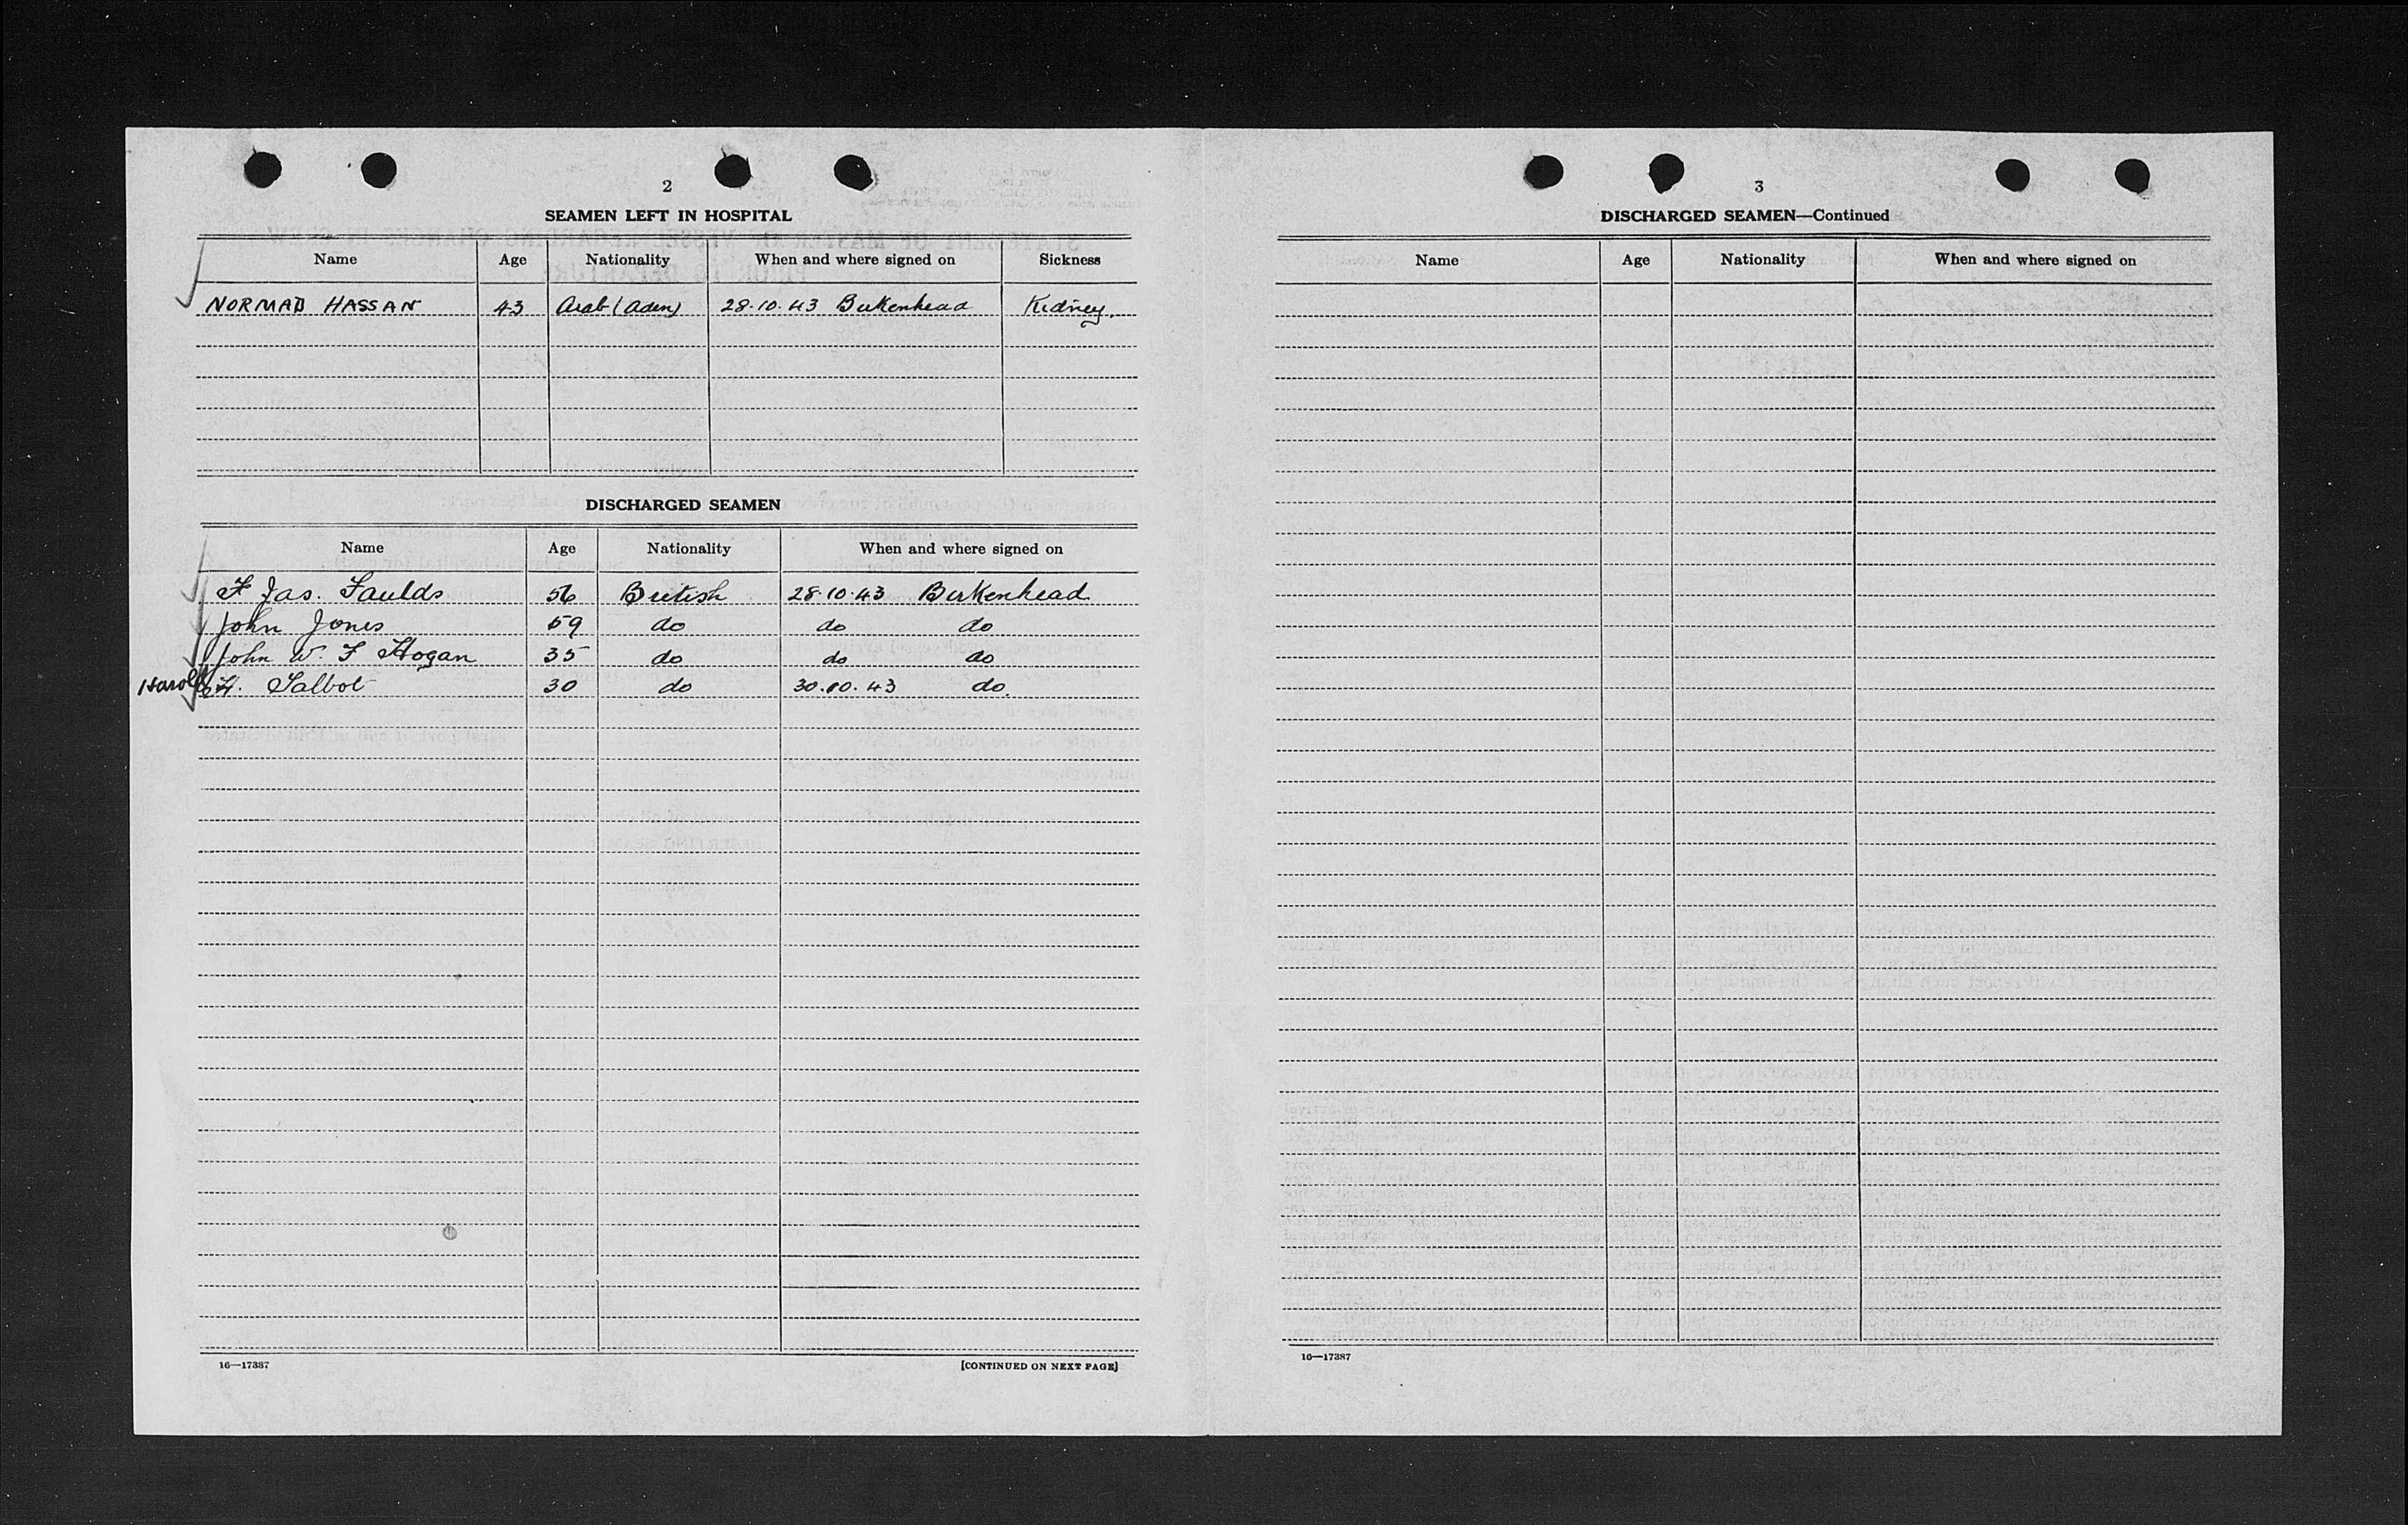 2
SEAMEN LEFT IN HOSPITAL
Name Age Nationality When and where signed on Sickness
NORMAD HASSAN 43 Arab (Aden) 28.10.43 Birkenhead Kidney.
DISCHARGED SEAMEN
Name Age Nationality When and where signed on
F Jas. Faulds 56 British 28.10.43 Birkenhead
John Jones 59 do do do
John W. F Hogan 35 do do do
Harold H. Talbot 30 do 30.10.43 do.
16—17387 [CONTINUED ON NEXT PAGE]
3
DISCHARGED SEAMEN—Continued
Name Age Nationality When and where signed on
16—17387